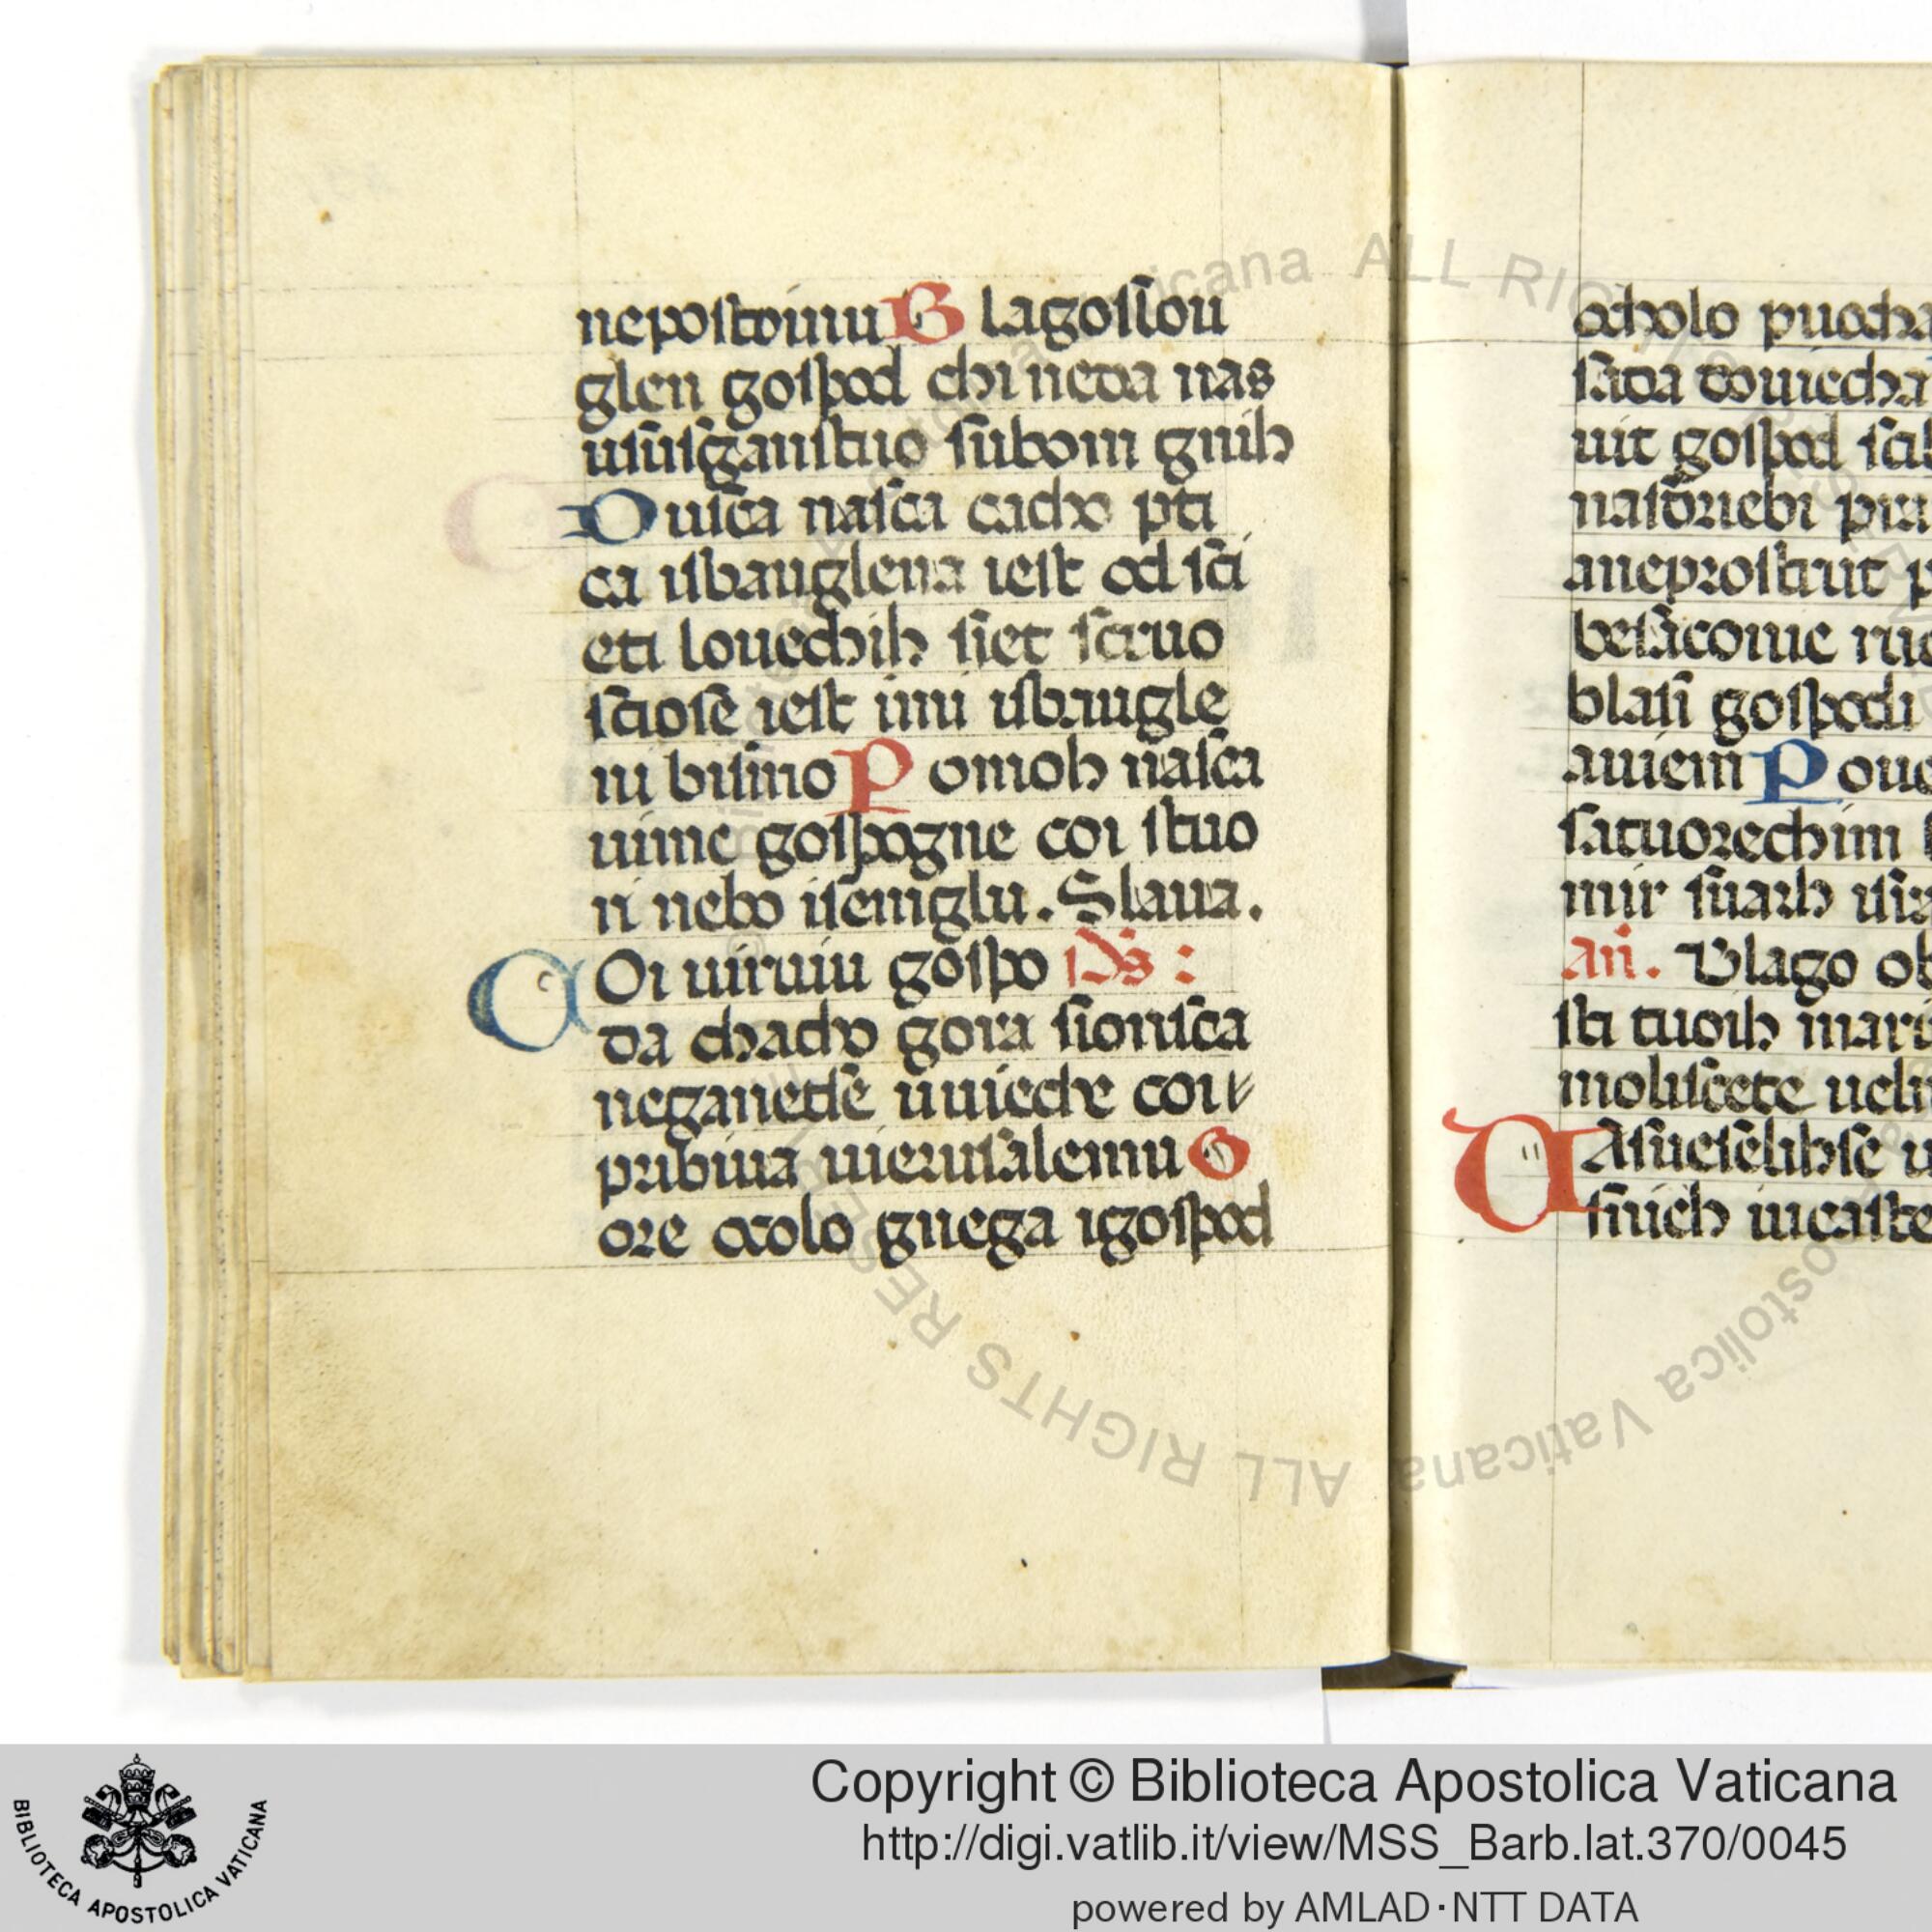 nepoſtoiuu Blagoſſou
glen goſpod chi neda nas
uſiuſganſtuo ſubom gnih
Duiſca naſca cacho pti
ca iſbauglena ieſt od ſci
eti louechih ſiet ſcruo
ſcioſe ieſt imi iſbaugle
ni biſmo Pomoh naſca
uime goſpogne coi ſtuo
ri nebo iſemglu. Slaua.
COi uiruiu goſpo Ps:
da chacho gora ſionſca
neganetſe uuieche coi
pribiua uieruſalemu G
ore ocolo gnega igoſpod
ocholo puocha
ſada douiecha
uit goſpod
naſdriebi pra
aneproſtrut p
beſaconie ruc
blaſi goſpodi
auiem Poue
ſatuorechim
mir ſuarh uſra
an. Blago ob
ſti tuoih mari
moliſcete ueli
UAſueſelihſe u
ſnich iucaſte
Biblioteca Apostolica Vaticana ALL RIGHTS RESERVED
BIBLIOTECA APOSTOLICA VATICANA
Copyright © Biblioteca Apostolica Vaticana
http://digi.vatlib.it/view/MSS_Barb.lat.370/0045
powered by AMLAD·NTT DATA